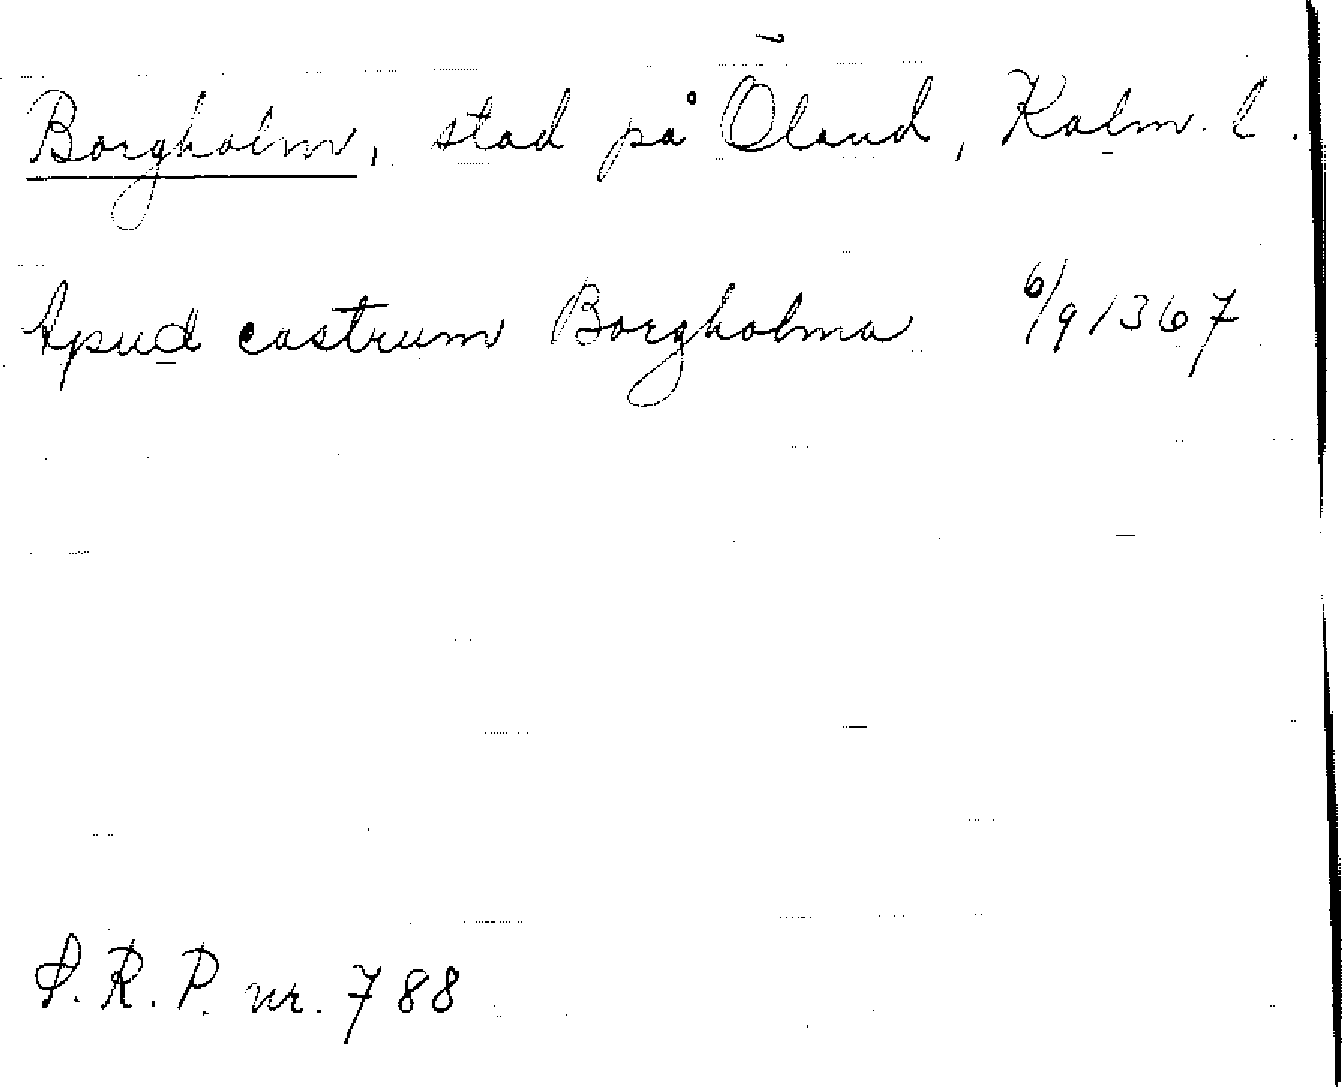 Borgholm, stad på Öland, Kalm. l.
Apud castrum Borgholma 6/9 1367
S.R.P. nr. 788